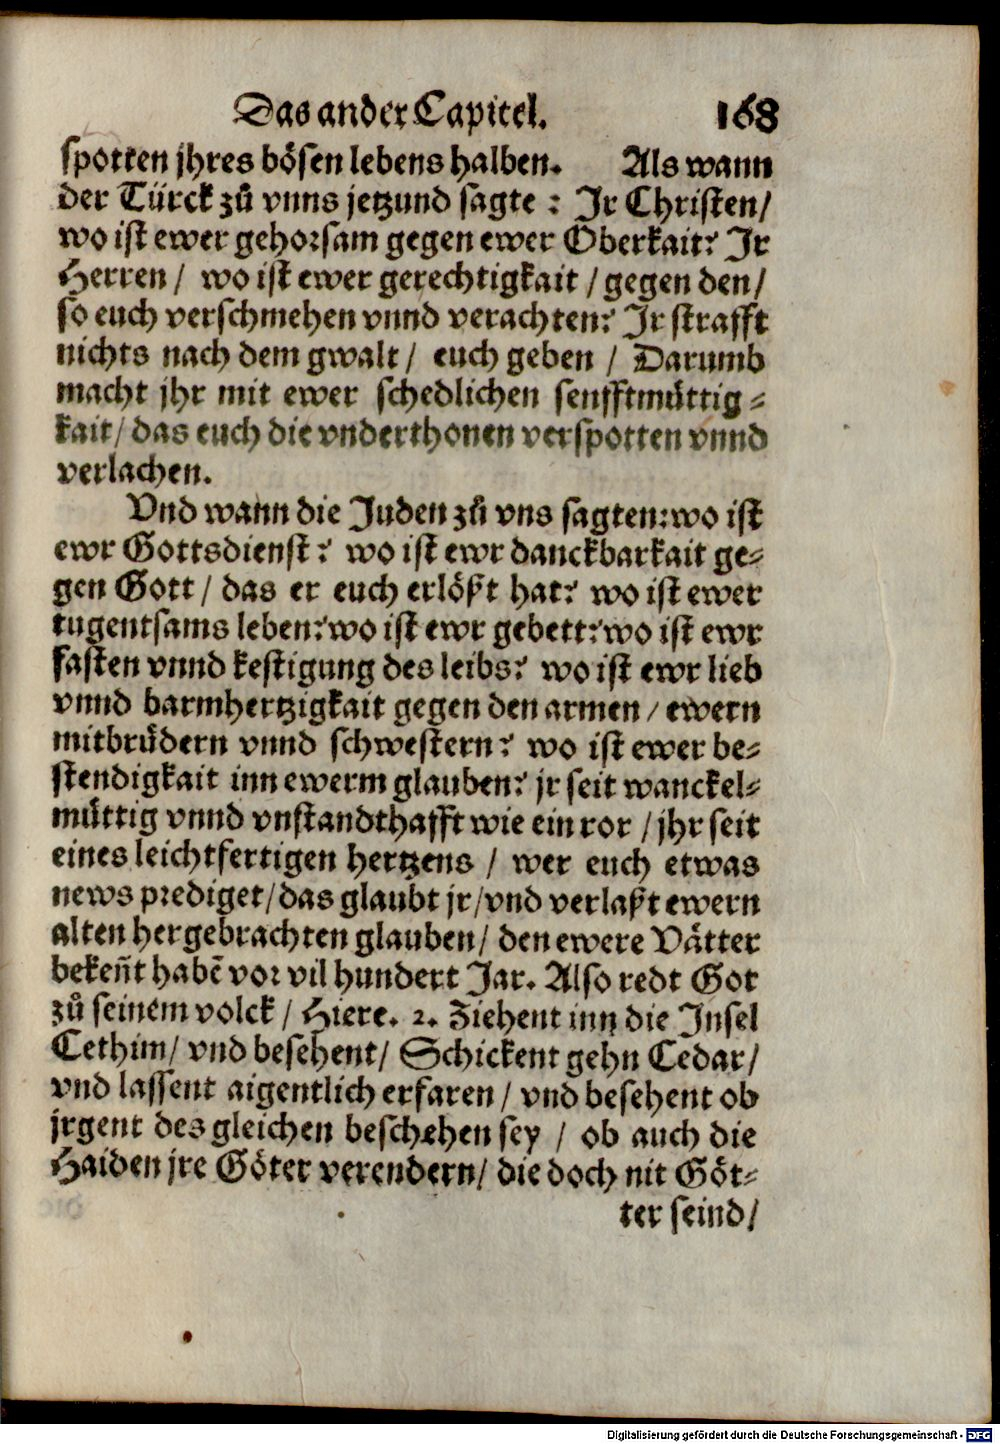 Das ander Capitel. 168
spotten jhres bösen lebens halben. Als wann
der Türck zů vnns jetzund sagte : Jr Christen/
wo ist ewer gehorsam gegen ewer Oberkait? Jr
Herren / wo ist ewer gerechtigkait / gegen den/
so euch verschmehen vnnd verachten? Jr strafft
nichts nach dem gwalt / euch geben / Darumb
macht jhr mit ewer schedlichen senfftmüttig-
kait/ das euch die vnderthonen verspotten vnnd
verlachen.
Vnd wann die Juden zů vns sagten:wo ist
ewr Gottsdienst? wo ist ewr danckbarkait ge-
gen Gott / das er euch erlößt hat? wo ist ewer
tugentsams leben?wo ist ewr gebett?wo ist ewr
fasten vnnd kestigung des leibs? wo ist ewr lieb
vnnd barmhertzigkait gegen den armen / ewern
mitbrüdern vnnd schwestern? wo ist ewer be-
stendigkait inn ewerm glauben? jr seit wanckel-
müttig vnnd vnstandthafft wie ein ror / jhr seit
eines leichtfertigen hertzens / wer euch etwas
news prediget/das glaubt jr/vnd verlaßt ewern
alten hergebrachten glauben/ den ewere Vätter
bekeñt habẽ vor vil hundert Jar. Also redt Got
zů seinem volck / Hiere. 2. Ziehent inn die Insel
Cethim/ vnd besehent/ Schickent gehn Cedar/
vnd lassent aigentlich erfaren / vnd besehent ob
jrgent des gleichen beschehen sey / ob auch die
Haiden jre Göter verendern/ die doch nit Göt-
ter seind/
Digitalisierung gefördert durch die Deutsche Forschungsgemeinschaft - DFG